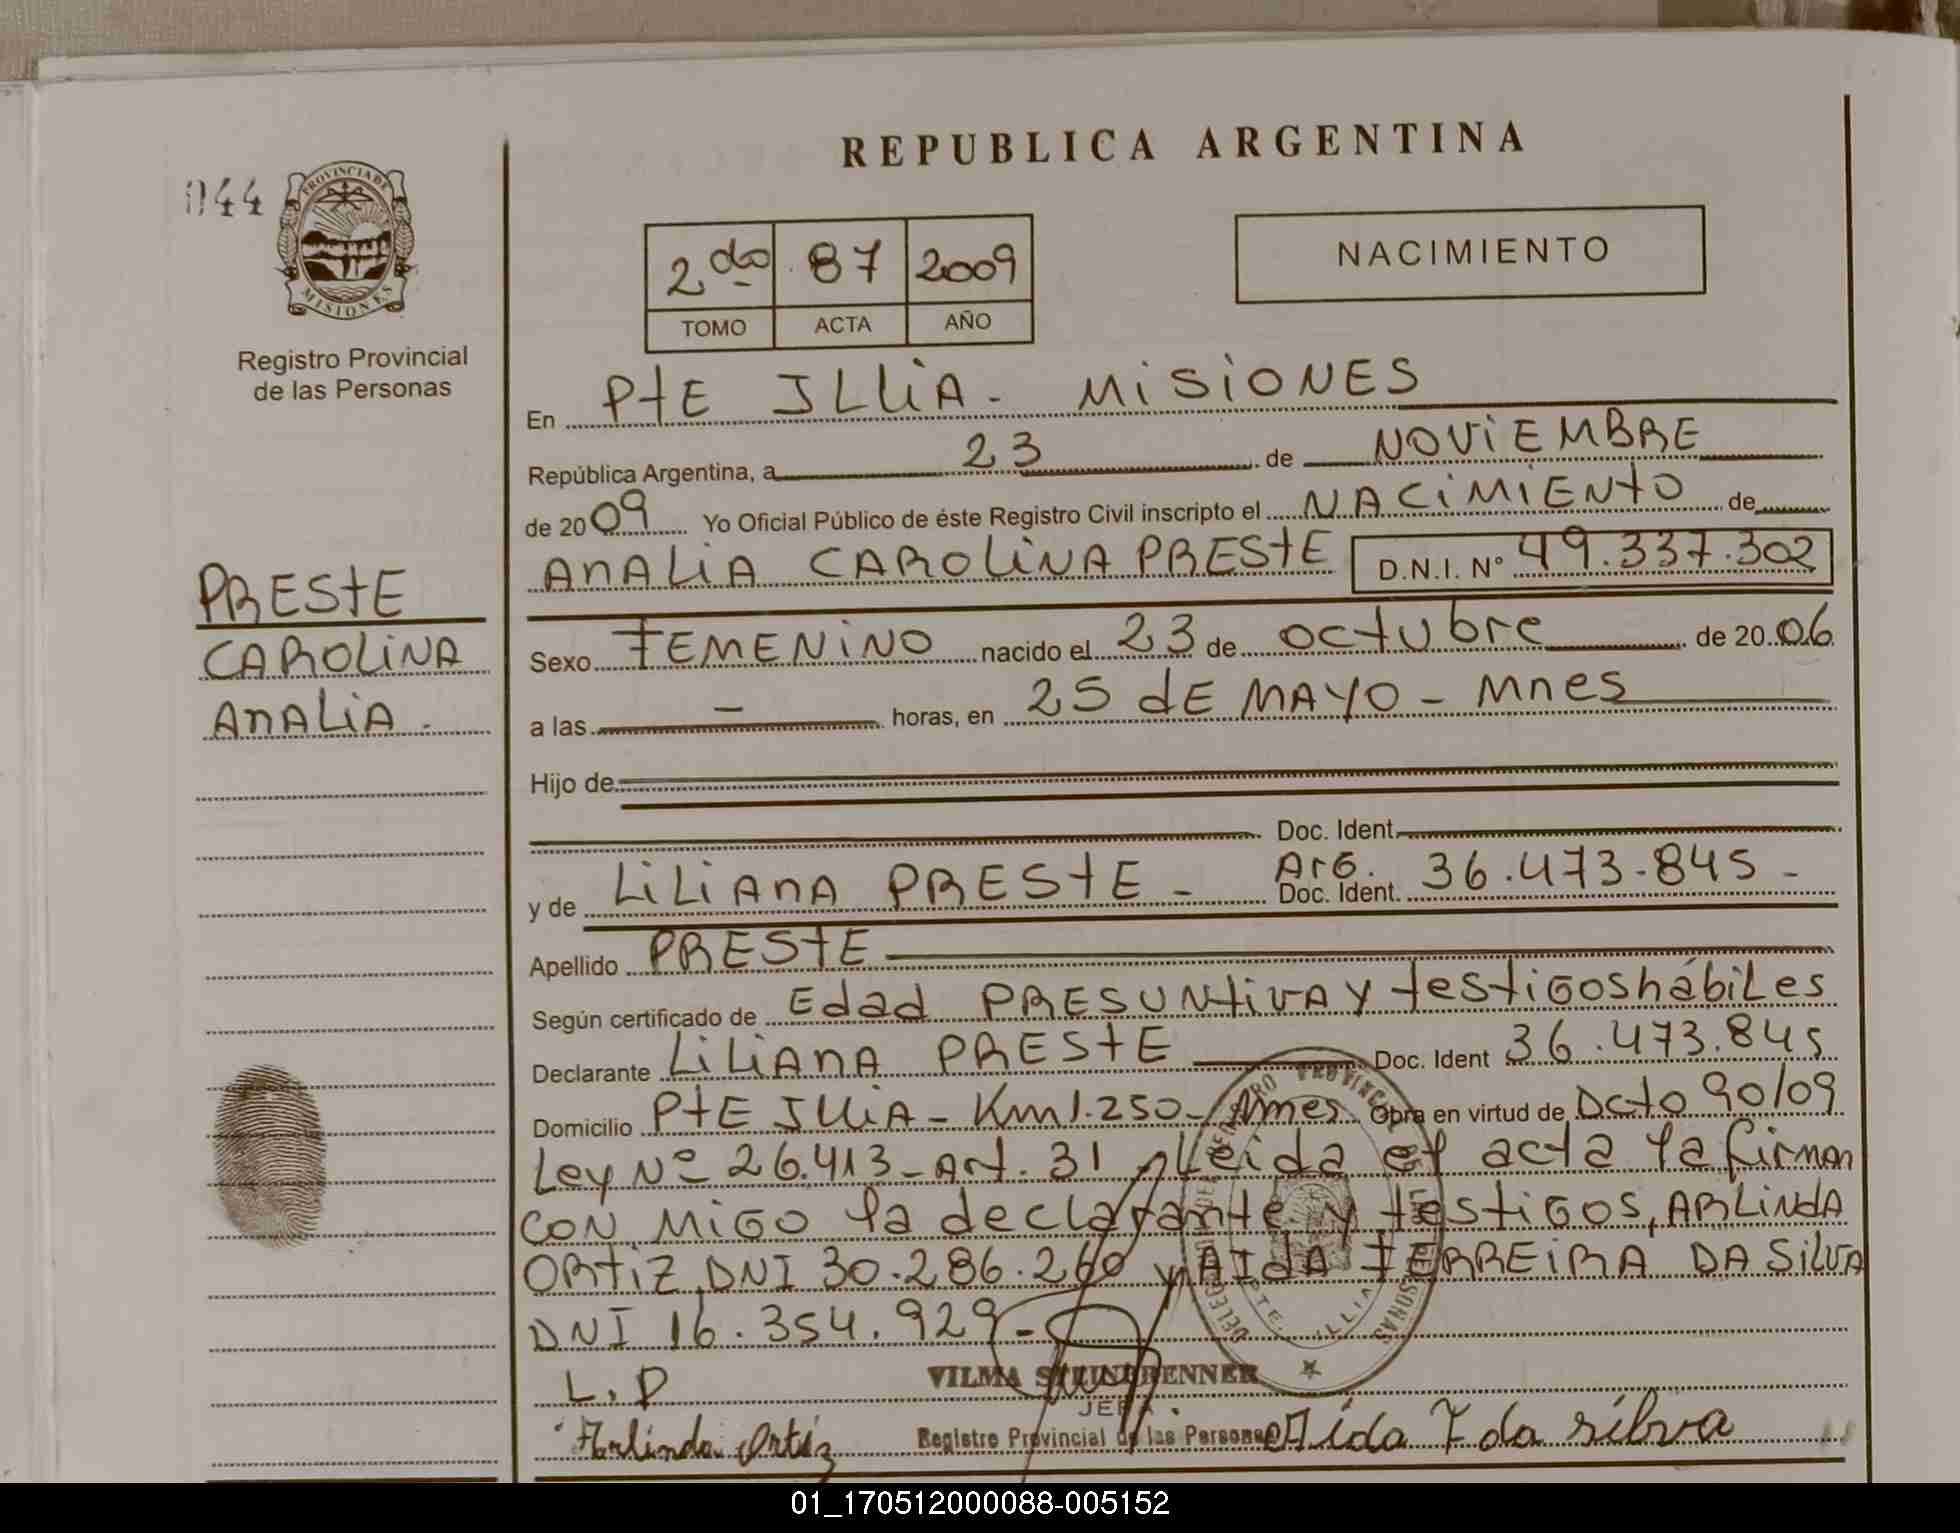 REPUBLICA ARGENTINA
044
PROVINCIA DE
MISIONES
Registro Provincial
de las Personas
2do 87 2009
TOMO ACTA AÑO
NACIMIENTO
En PtE ILLiA - MiSiONES
República Argentina, a 23 de NOViEMBRE
de 2009 Yo Oficial Público de éste Registro Civil inscripto el NACiMiENtO de
ANALiA CAROLiNA PREStE D.N.I. N° 49.337.302
PREStE
CAROLiNA
ANALiA.
Sexo FEMENiNO nacido el 23 de octubre de 2006
a las - horas, en 25 dE MAYO - Mnes
Hijo de
Doc. Ident.
y de LiLiANA PREStE - Arg. Doc. Ident. 36.473.845 -
Apellido PREStE
Según certificado de Edad PRESUNtiVA Y testigos hábiles
Declarante LiLiANA PREStE Doc. Ident 36.473.845
Domicilio PtE ILLiA - Km 1.250 - Mnes. Obra en virtud de Dcto 90/09
Ley Nº 26.413 - Art. 31 Leida el acta la firman
CON MiGO la declarante y testiGOS, ARLiNdA
ORtiZ, DNI 30.286.260 y AIdA FERREiRA DA SiLVA
DNI 16.354.929 -
DELEG
PTE. ILLIA
L. P
VILMA STEINBRENNER
JEFA
Registro Provincial de las Personas
Arlinda Ortiz
Aida F da silva
01_170512000088-005152